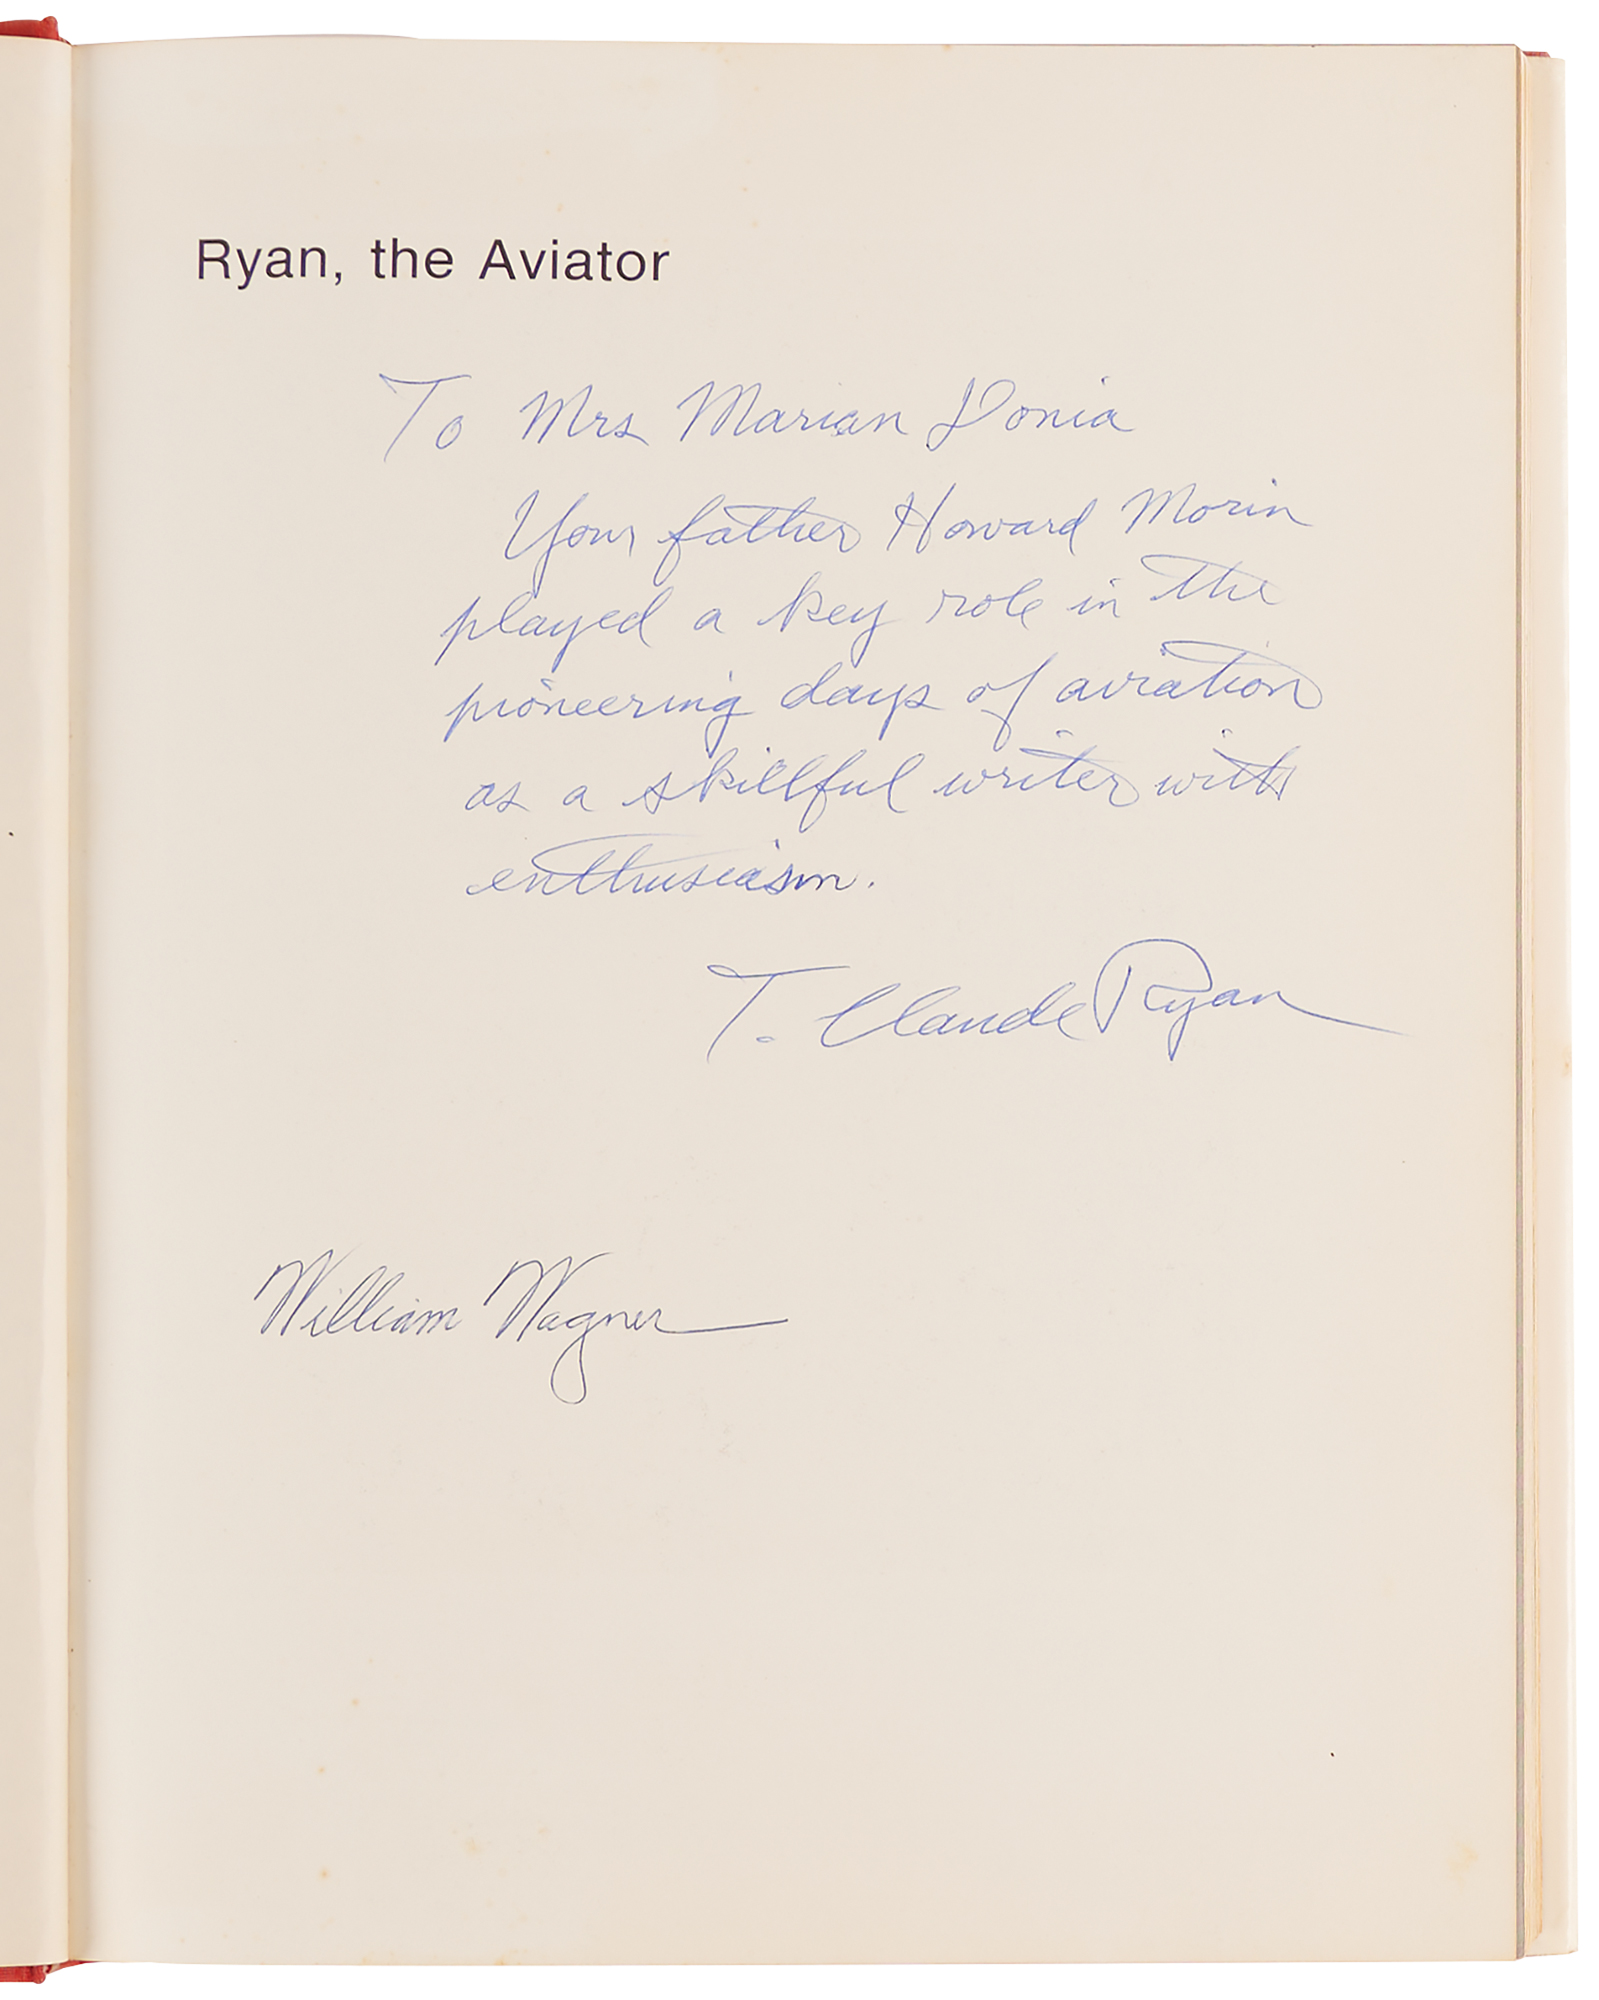 Ryan, the Aviator
To Mrs Marian Donia
Your father Howard Morin
played a key role in the
pioneering days of aviation
as a skillful writer with
enthusiasm.
T. Claude Ryan
William Wagner